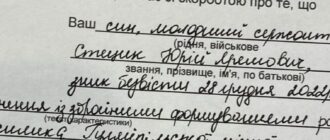 зі скорботою про те, що
Ваш син, молодший сержант
(рідня, військове
Стецик Юрій Яремович,
звання, прізвище, ім'я, по батькові)
зник безвісти 28 грудня 2022
з формуваннями
(текст характеристики)